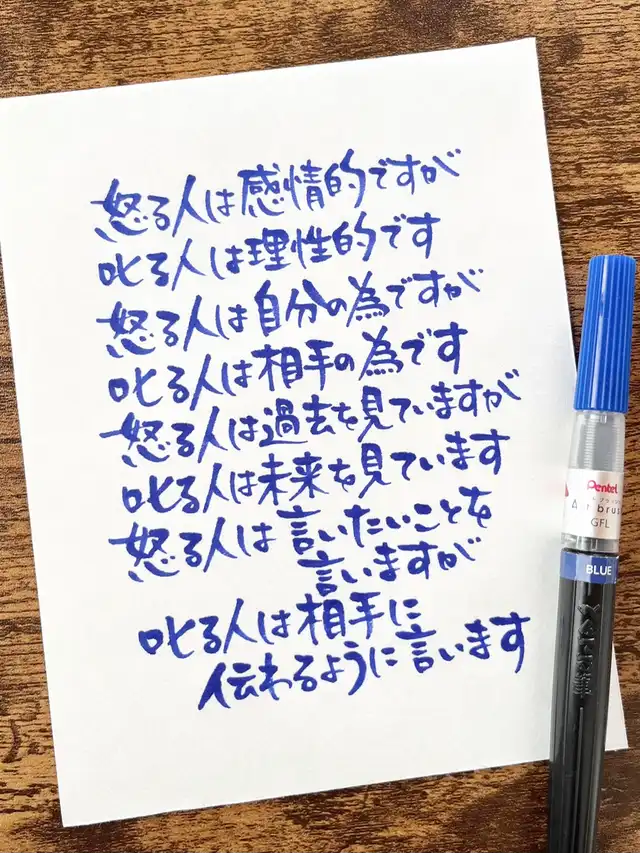 怒る人は感情的ですが
叱る人は理性的です
怒る人は自分の為ですが
叱る人は相手の為です
怒る人は過去を見ていますが
叱る人は未来を見ています
怒る人は言いたいことを
言いますが
叱る人は相手に
伝わるように言います
Pentel
Art brush
GFL
BLUE